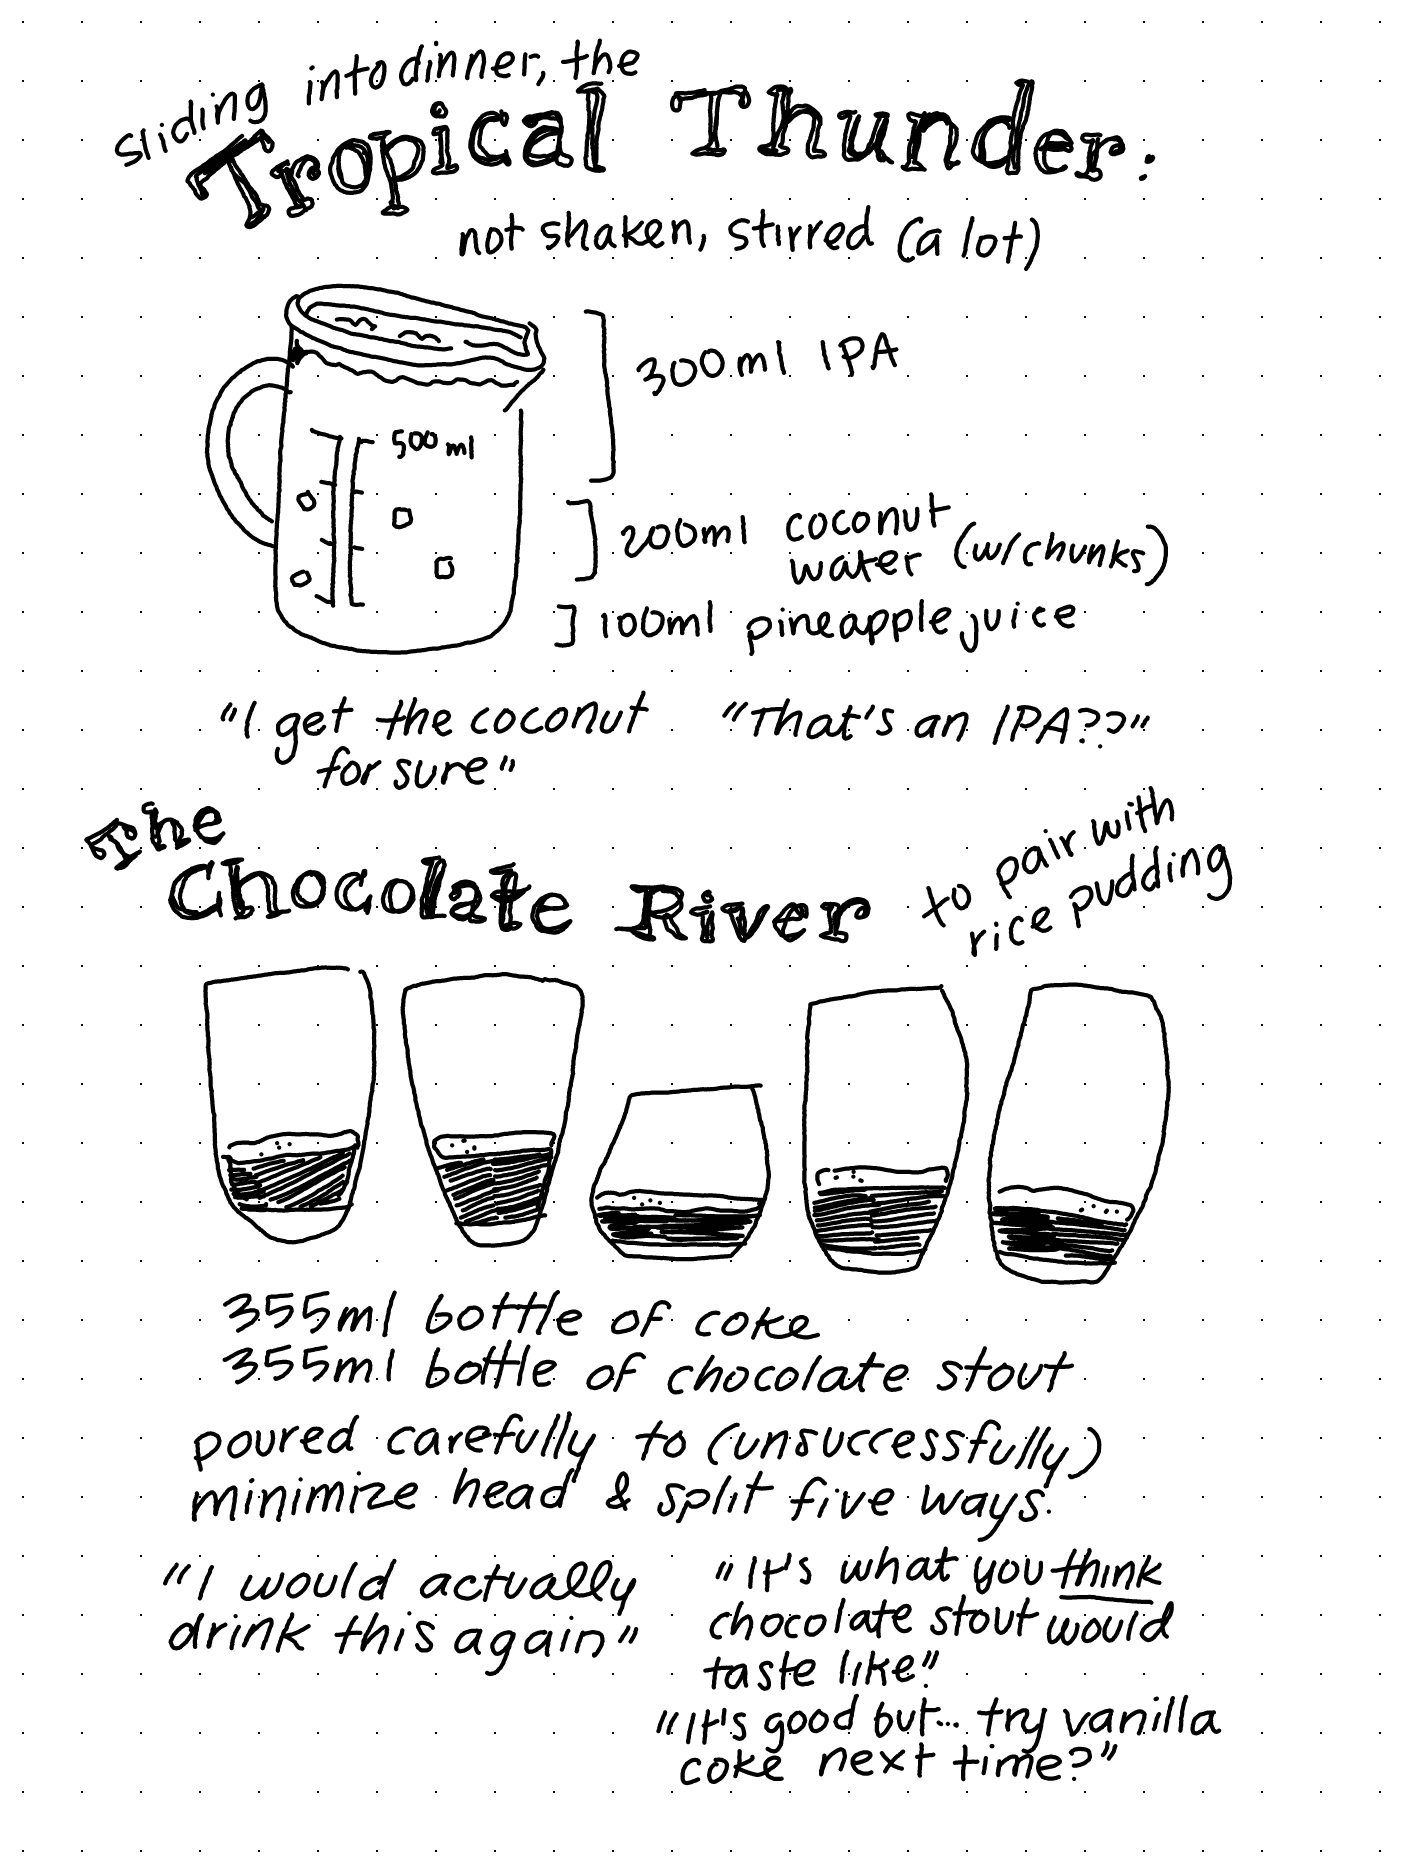 sliding into dinner, the
Tropical Thunder:
not shaken, stirred (a lot)
300ml IPA
500ml
200ml coconut
water (w/chunks)
100ml pineapple juice
"I get the coconut
for sure"
"That's an IPA??"
The
Chocolate River
to pair with
rice pudding
355ml bottle of coke
355ml bottle of chocolate stout
poured carefully to (unsuccessfully)
minimize head & split five ways.
"I would actually
drink this again"
"It's what you think
chocolate stout would
taste like."
"It's good but... try vanilla
coke next time?"